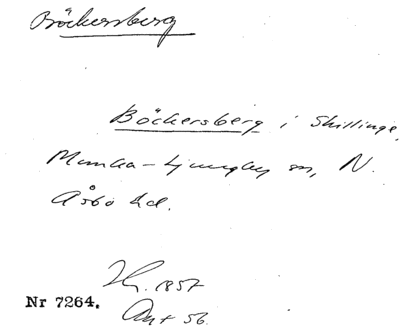 Böckersberg
Böckersberg i Skillinge,
Munka-Ljungby sn, N.
Åsbo hd.
1857
Nr 7264.
56.